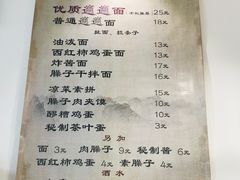 优质𰻝𰻝面 25元
普通𰻝𰻝面 18元
油泼面 13元
西红柿鸡蛋面 15元
炸酱面 17元
臊子干拌面 16元
凉菜素拼 15元
臊子肉夹馍 10元
醪糟鸡蛋 10元
秘制茶叶蛋 3元
另加
面 3元 肉臊子 9元 秘制酱 6元
西红柿鸡蛋 4元 素臊子 4元
酒水